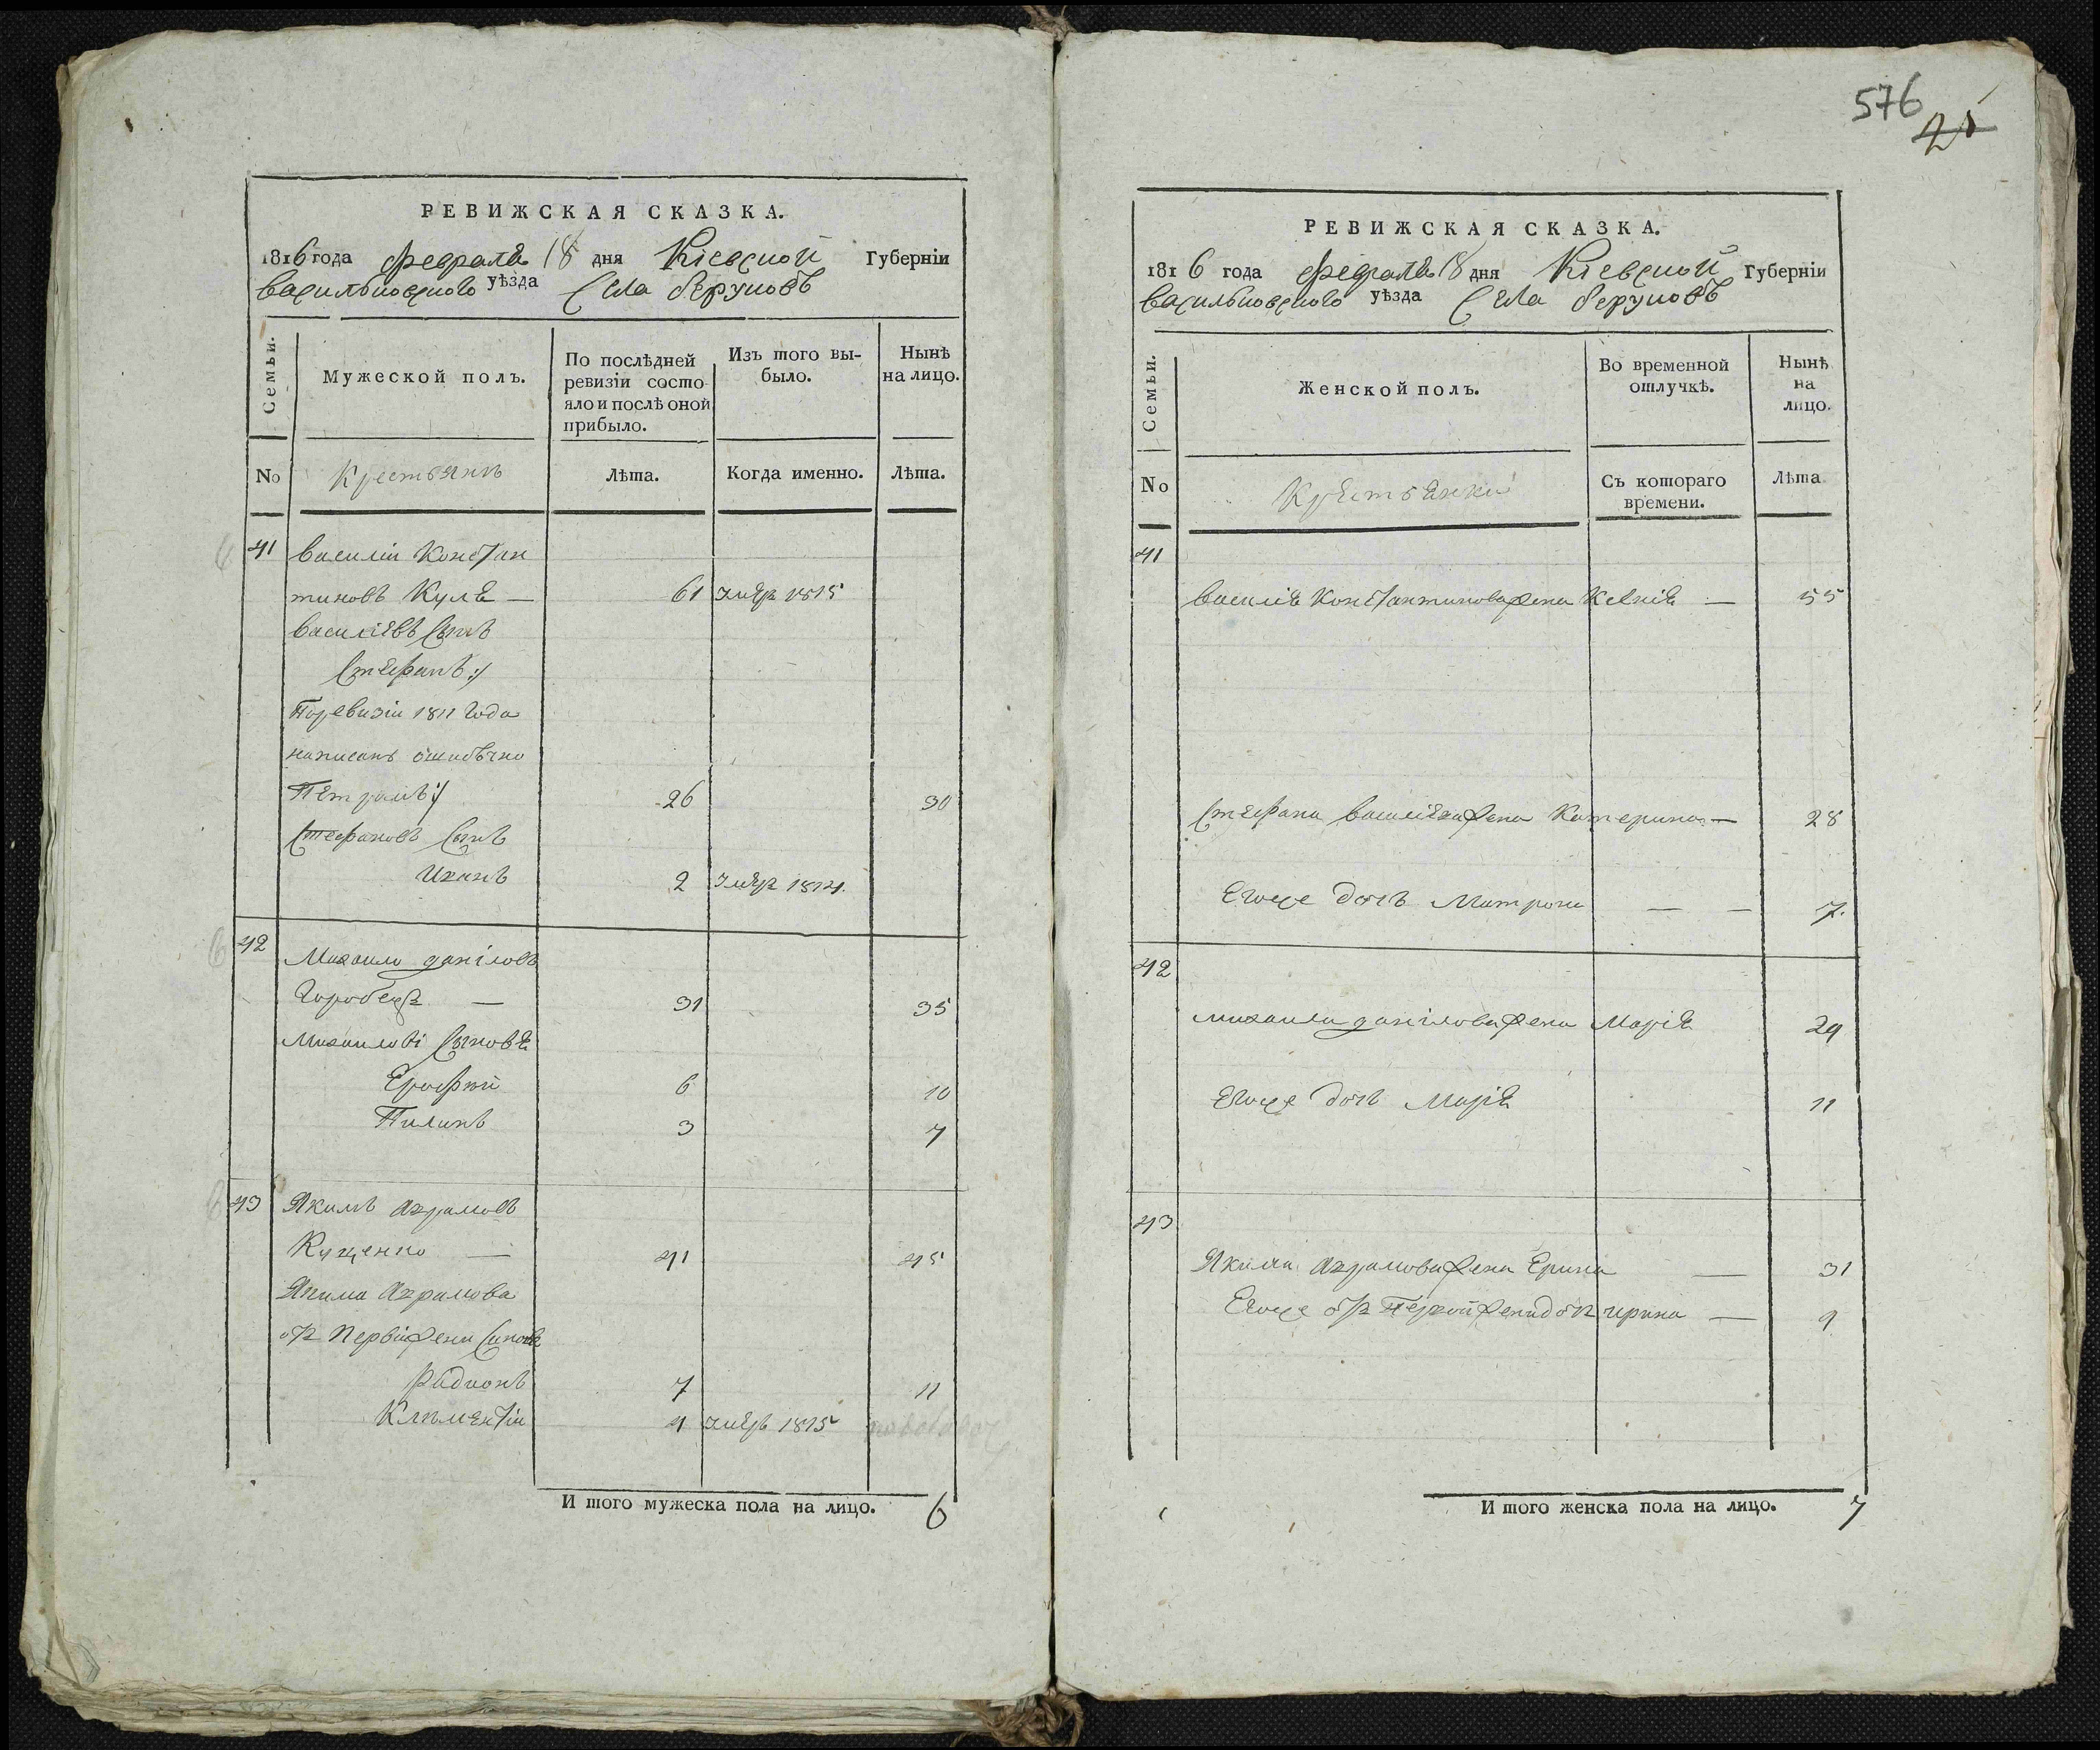 576
21
РЕВИЖСКАЯ СКАЗКА.
1816 года февраля 18 дня Кіевской Губерніи
васильковского уѣзда Села
Семьи.
Мужеской полъ.
По послѣдней ревизіи состояло и послѣ оной прибыло.
Изъ того выбыло.
Нынѣ на лицо.
No
Крестьянъ
Лѣта.
Когда именно.
Лѣта.
41 василіи Констан
тиновъ Куля — 61 1815
василіевъ сынъ
Стефанъ:/
По ревизіи 1811 года
написанъ ошибъчно
Петромъ:/ 26 30
Стефановъ сынъ
Иванъ 2 1814.
42 Михаило данiловъ
Горобецъ — 31 35
Михаиловi сыновя
Ерофѣй 6 10
Пилипъ 3 7
43 Якимъ Аврамовъ
Кущенко — 41 45
Якима Аврамова
отъ первiй жени
Радионъ 7 11
Климентiи 4 1815
И того мужеска пола на лицо. 6
РЕВИЖСКАЯ СКАЗКА.
1816 года февраля 18 дня Кіевской Губерніи
васильковского уѣзда Села
Семьи.
Женской полъ.
Во временной отлучкѣ.
Нынѣ на лицо.
No
Крестьянки
Съ котораго времени.
Лѣта
41
василія Константинова жена — 55
Стефана василіева жена Катерина — 28
Егоже дочъ Матрона — — 7.
42
михаила данiлова жена Марiя 29
Егоже дочъ Марiя 11
43
Якима Аврамова жена Ерина — 31
Егоже отъ первой жени дочъ ирина — 9
И того женска пола на лицо. 7